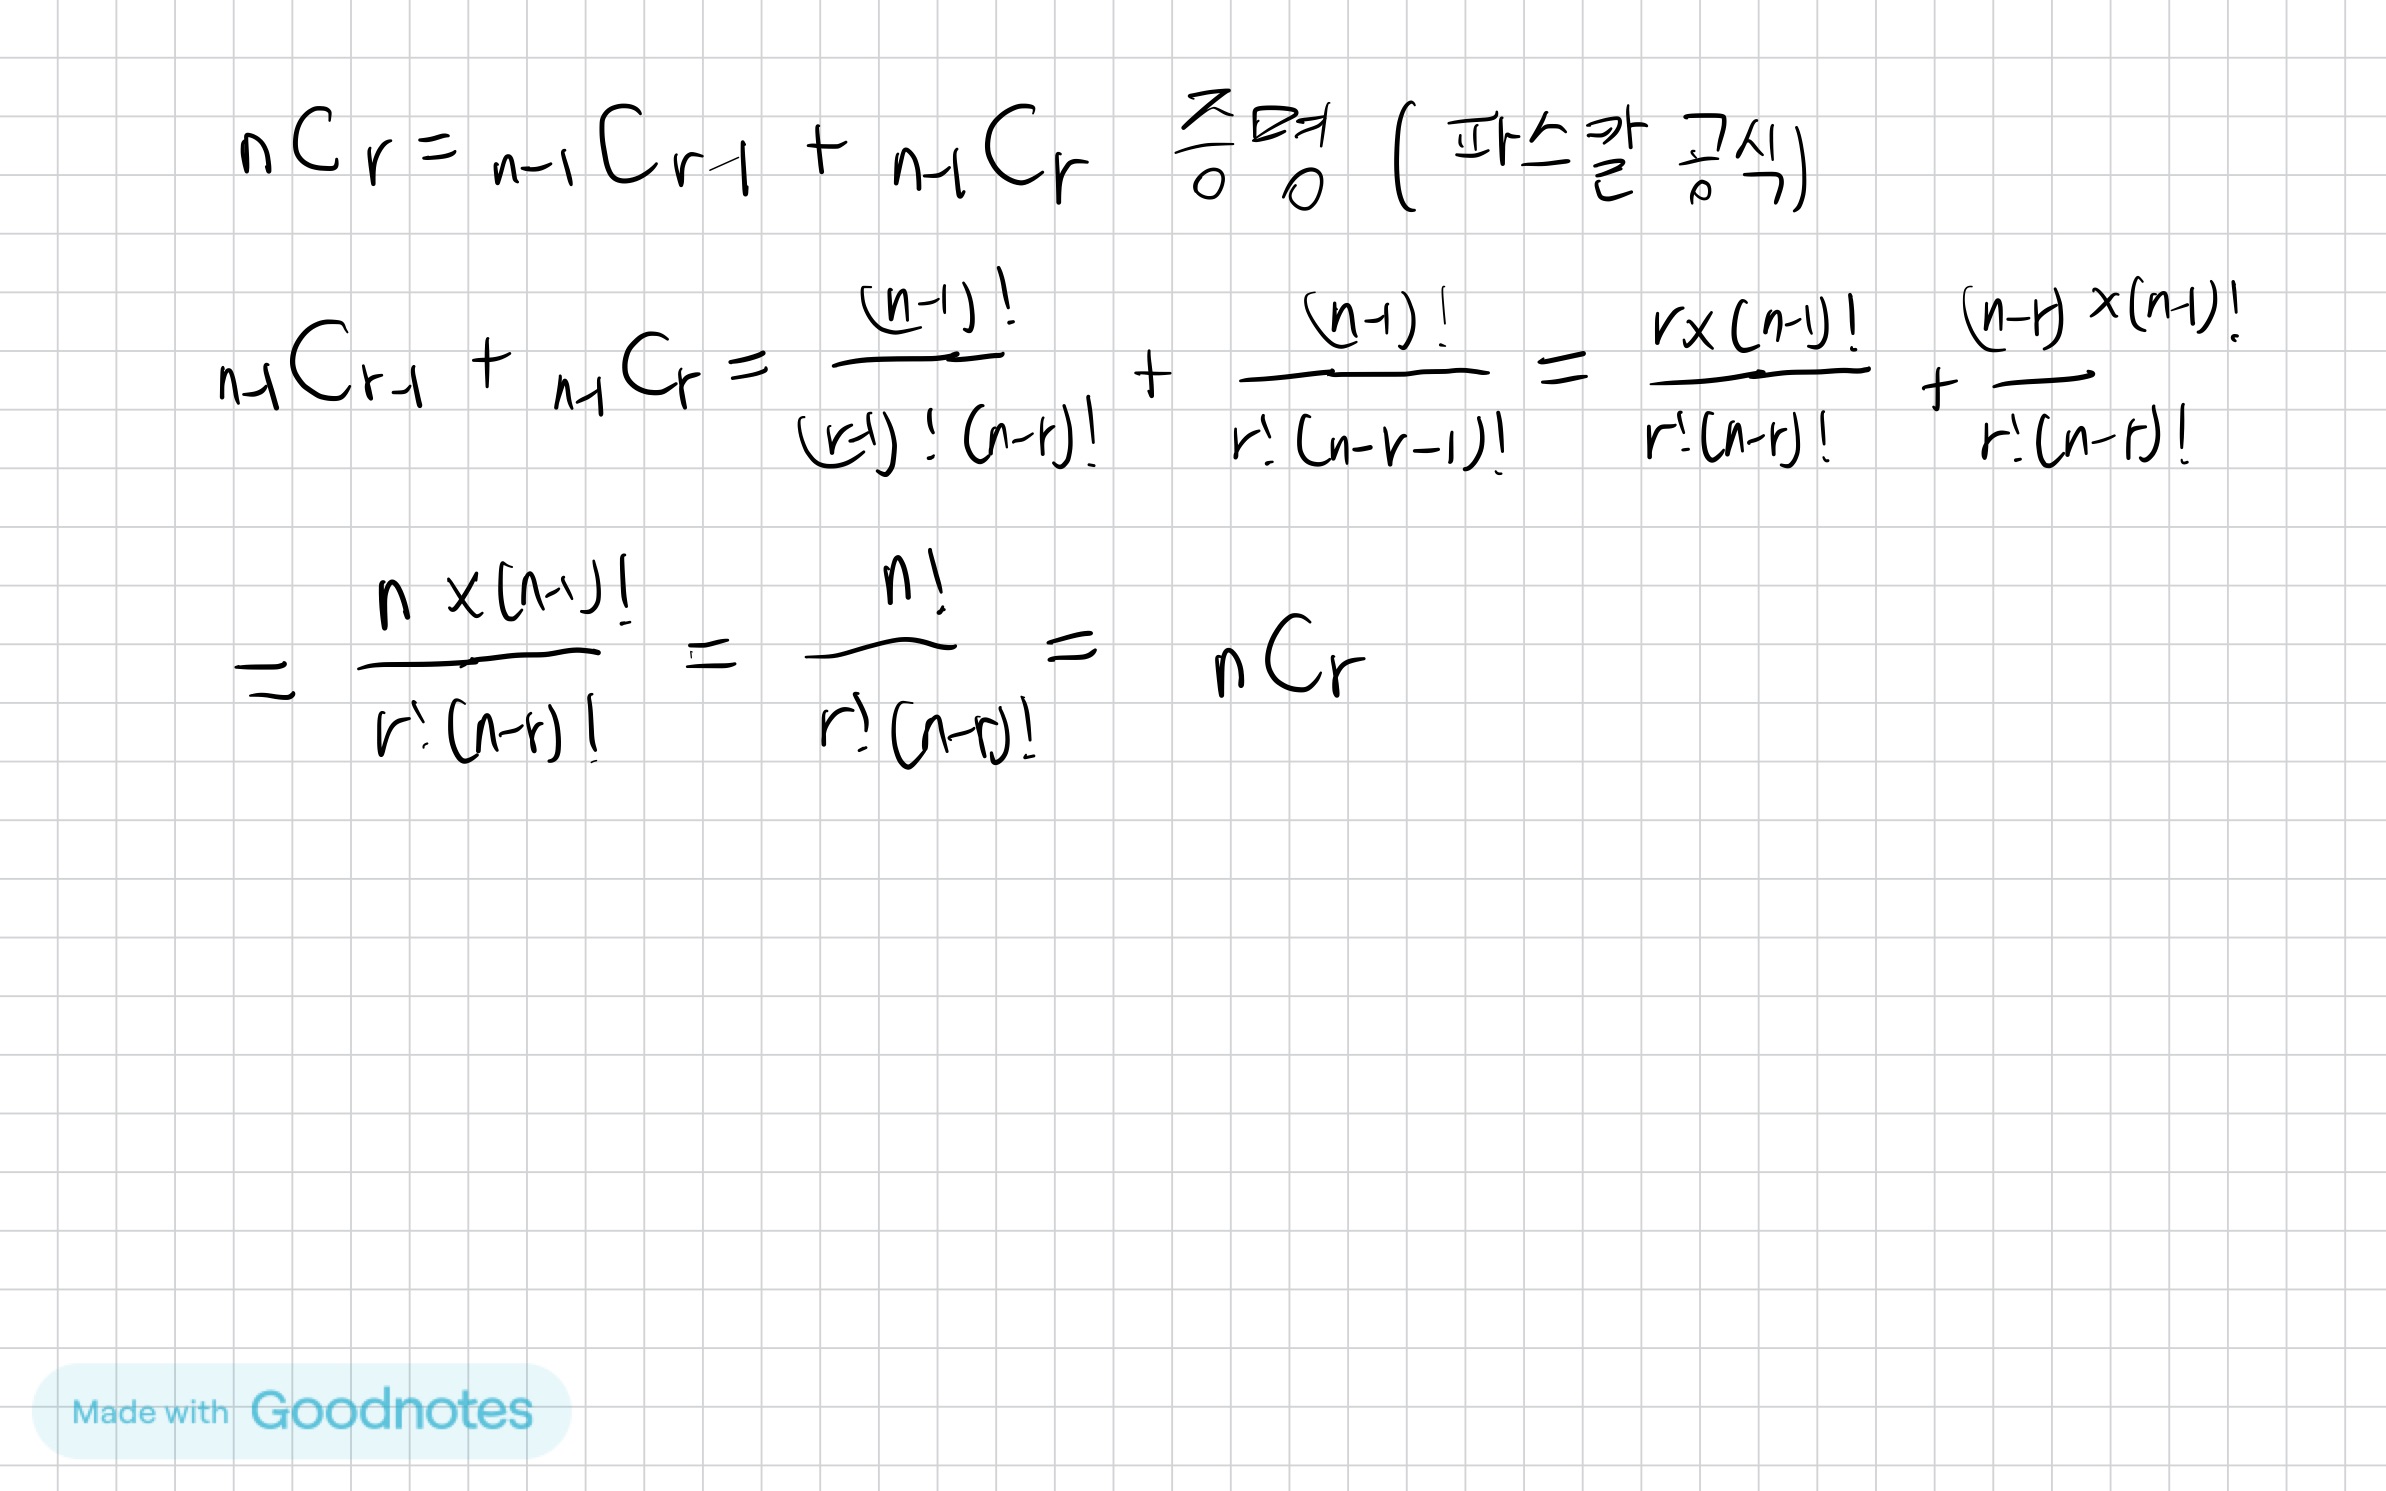 nCr = n-1Cr-1 + n-1Cr 증명 (파스칼 공식)
n-1Cr-1 + n-1Cr = (n-1)! / (r-1)!(n-r)! + (n-1)! / r!(n-r-1)! = r×(n-1)! / r!(n-r)! + (n-r)×(n-1)! / r!(n-r)!
= n×(n-1)! / r!(n-r)! = n! / r!(n-r)! = nCr
Made with Goodnotes